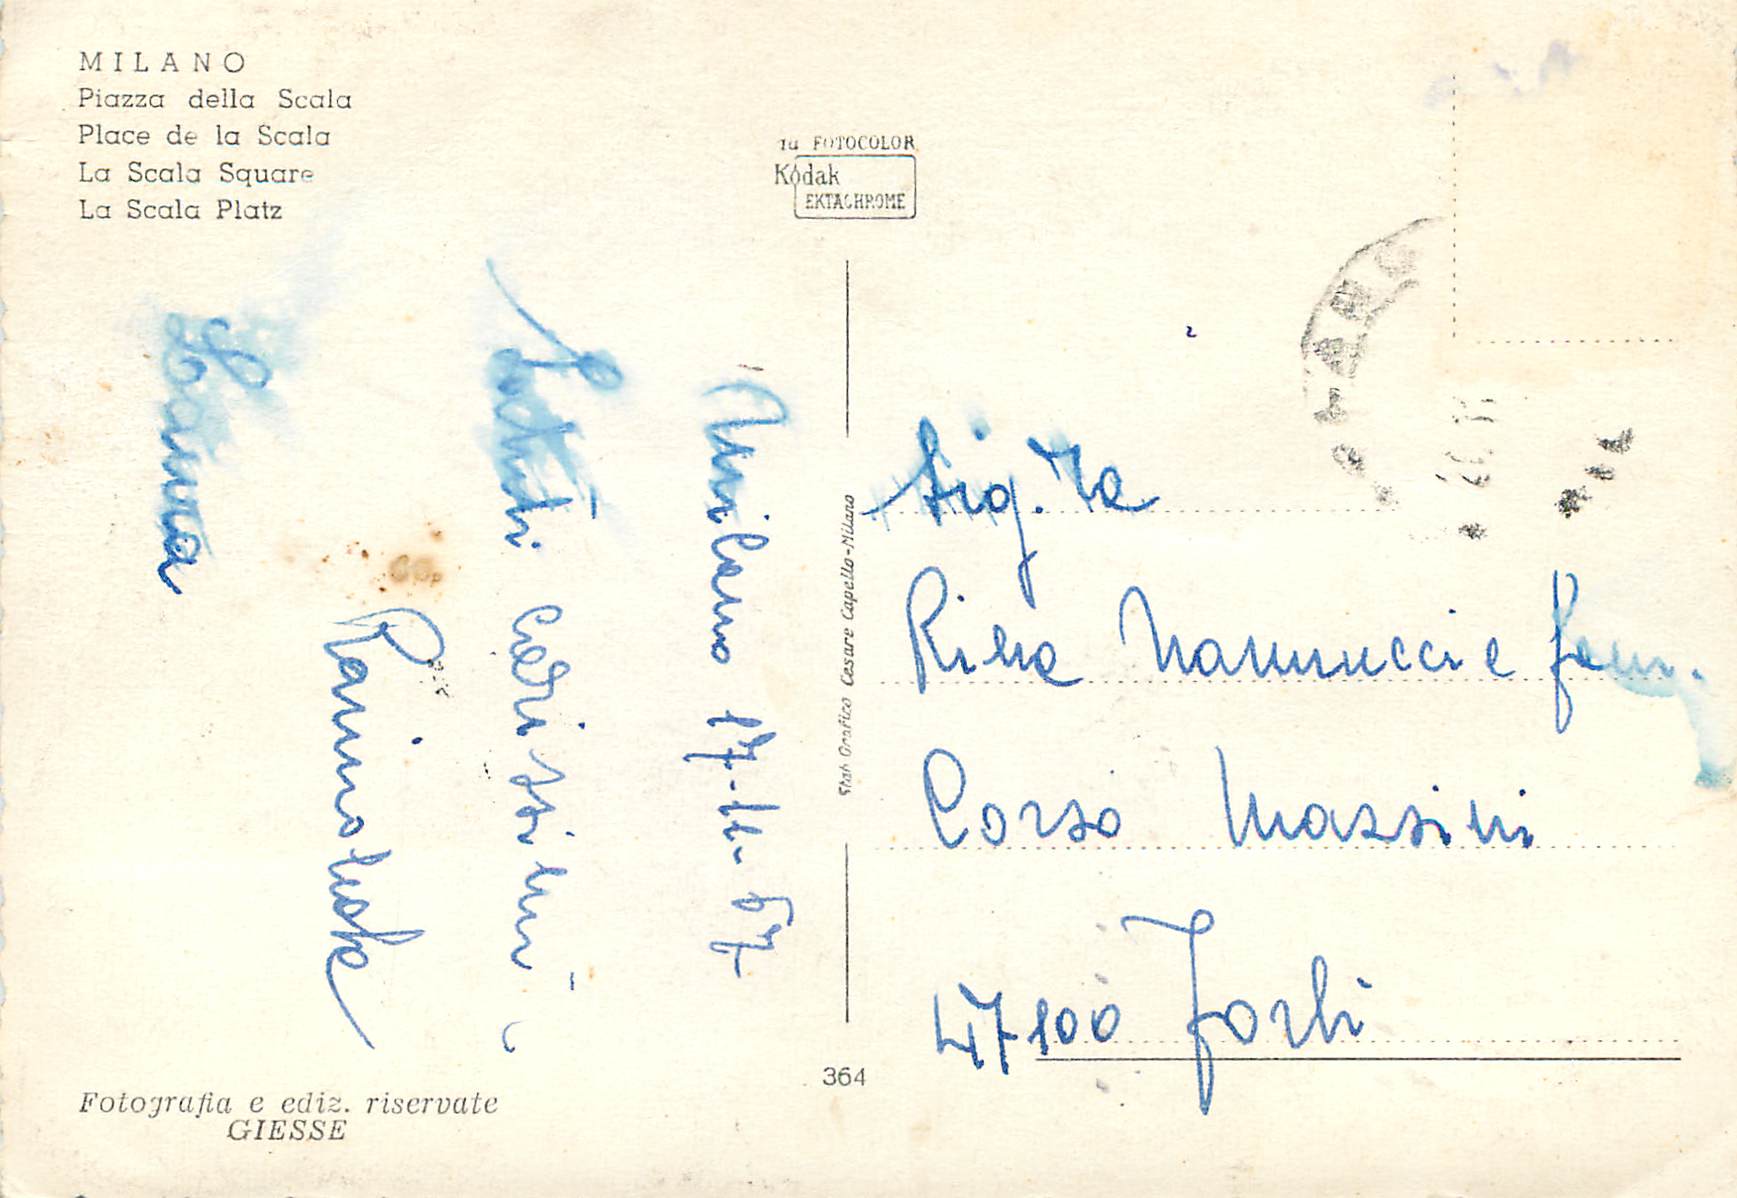 MILANO
Piazza della Scala
Place de la Scala
La Scala Square
La Scala Platz
FOTOCOLOR
Kodak
EKTACHROME
Milano 17-11-67
Saluti carissimi
Stab Grafico Cesare Capello-Milano
Sig.ra
Rina Nannucci e fam.
Corso Mazzini
47100 Forlì
364
Fotografia e ediz. riservate
GIESSE